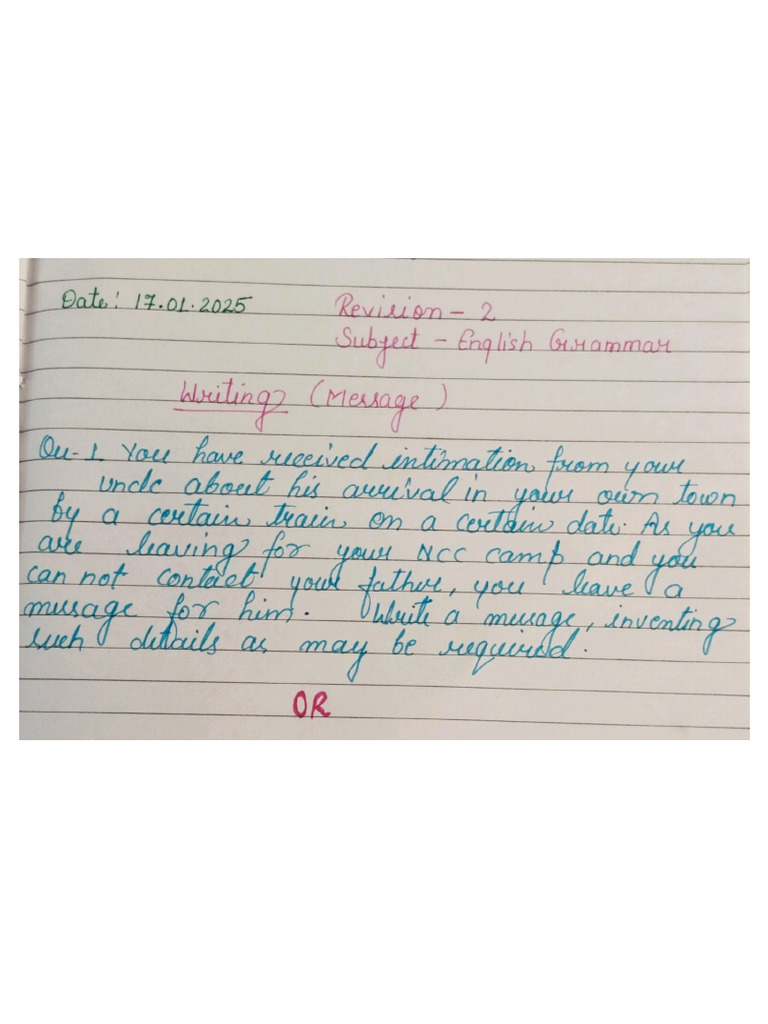 Date: 17.01.2025 Revision - 2
Subject - English Grammar
Writing (Message)
Qu-1 You have received intimation from your
uncle about his arrival in your own town
by a certain train on a certain date. As you
are leaving for your NCC camp and you
can not contact your father, you leave a
message for him. Write a message, inventing
such details as may be required.
OR